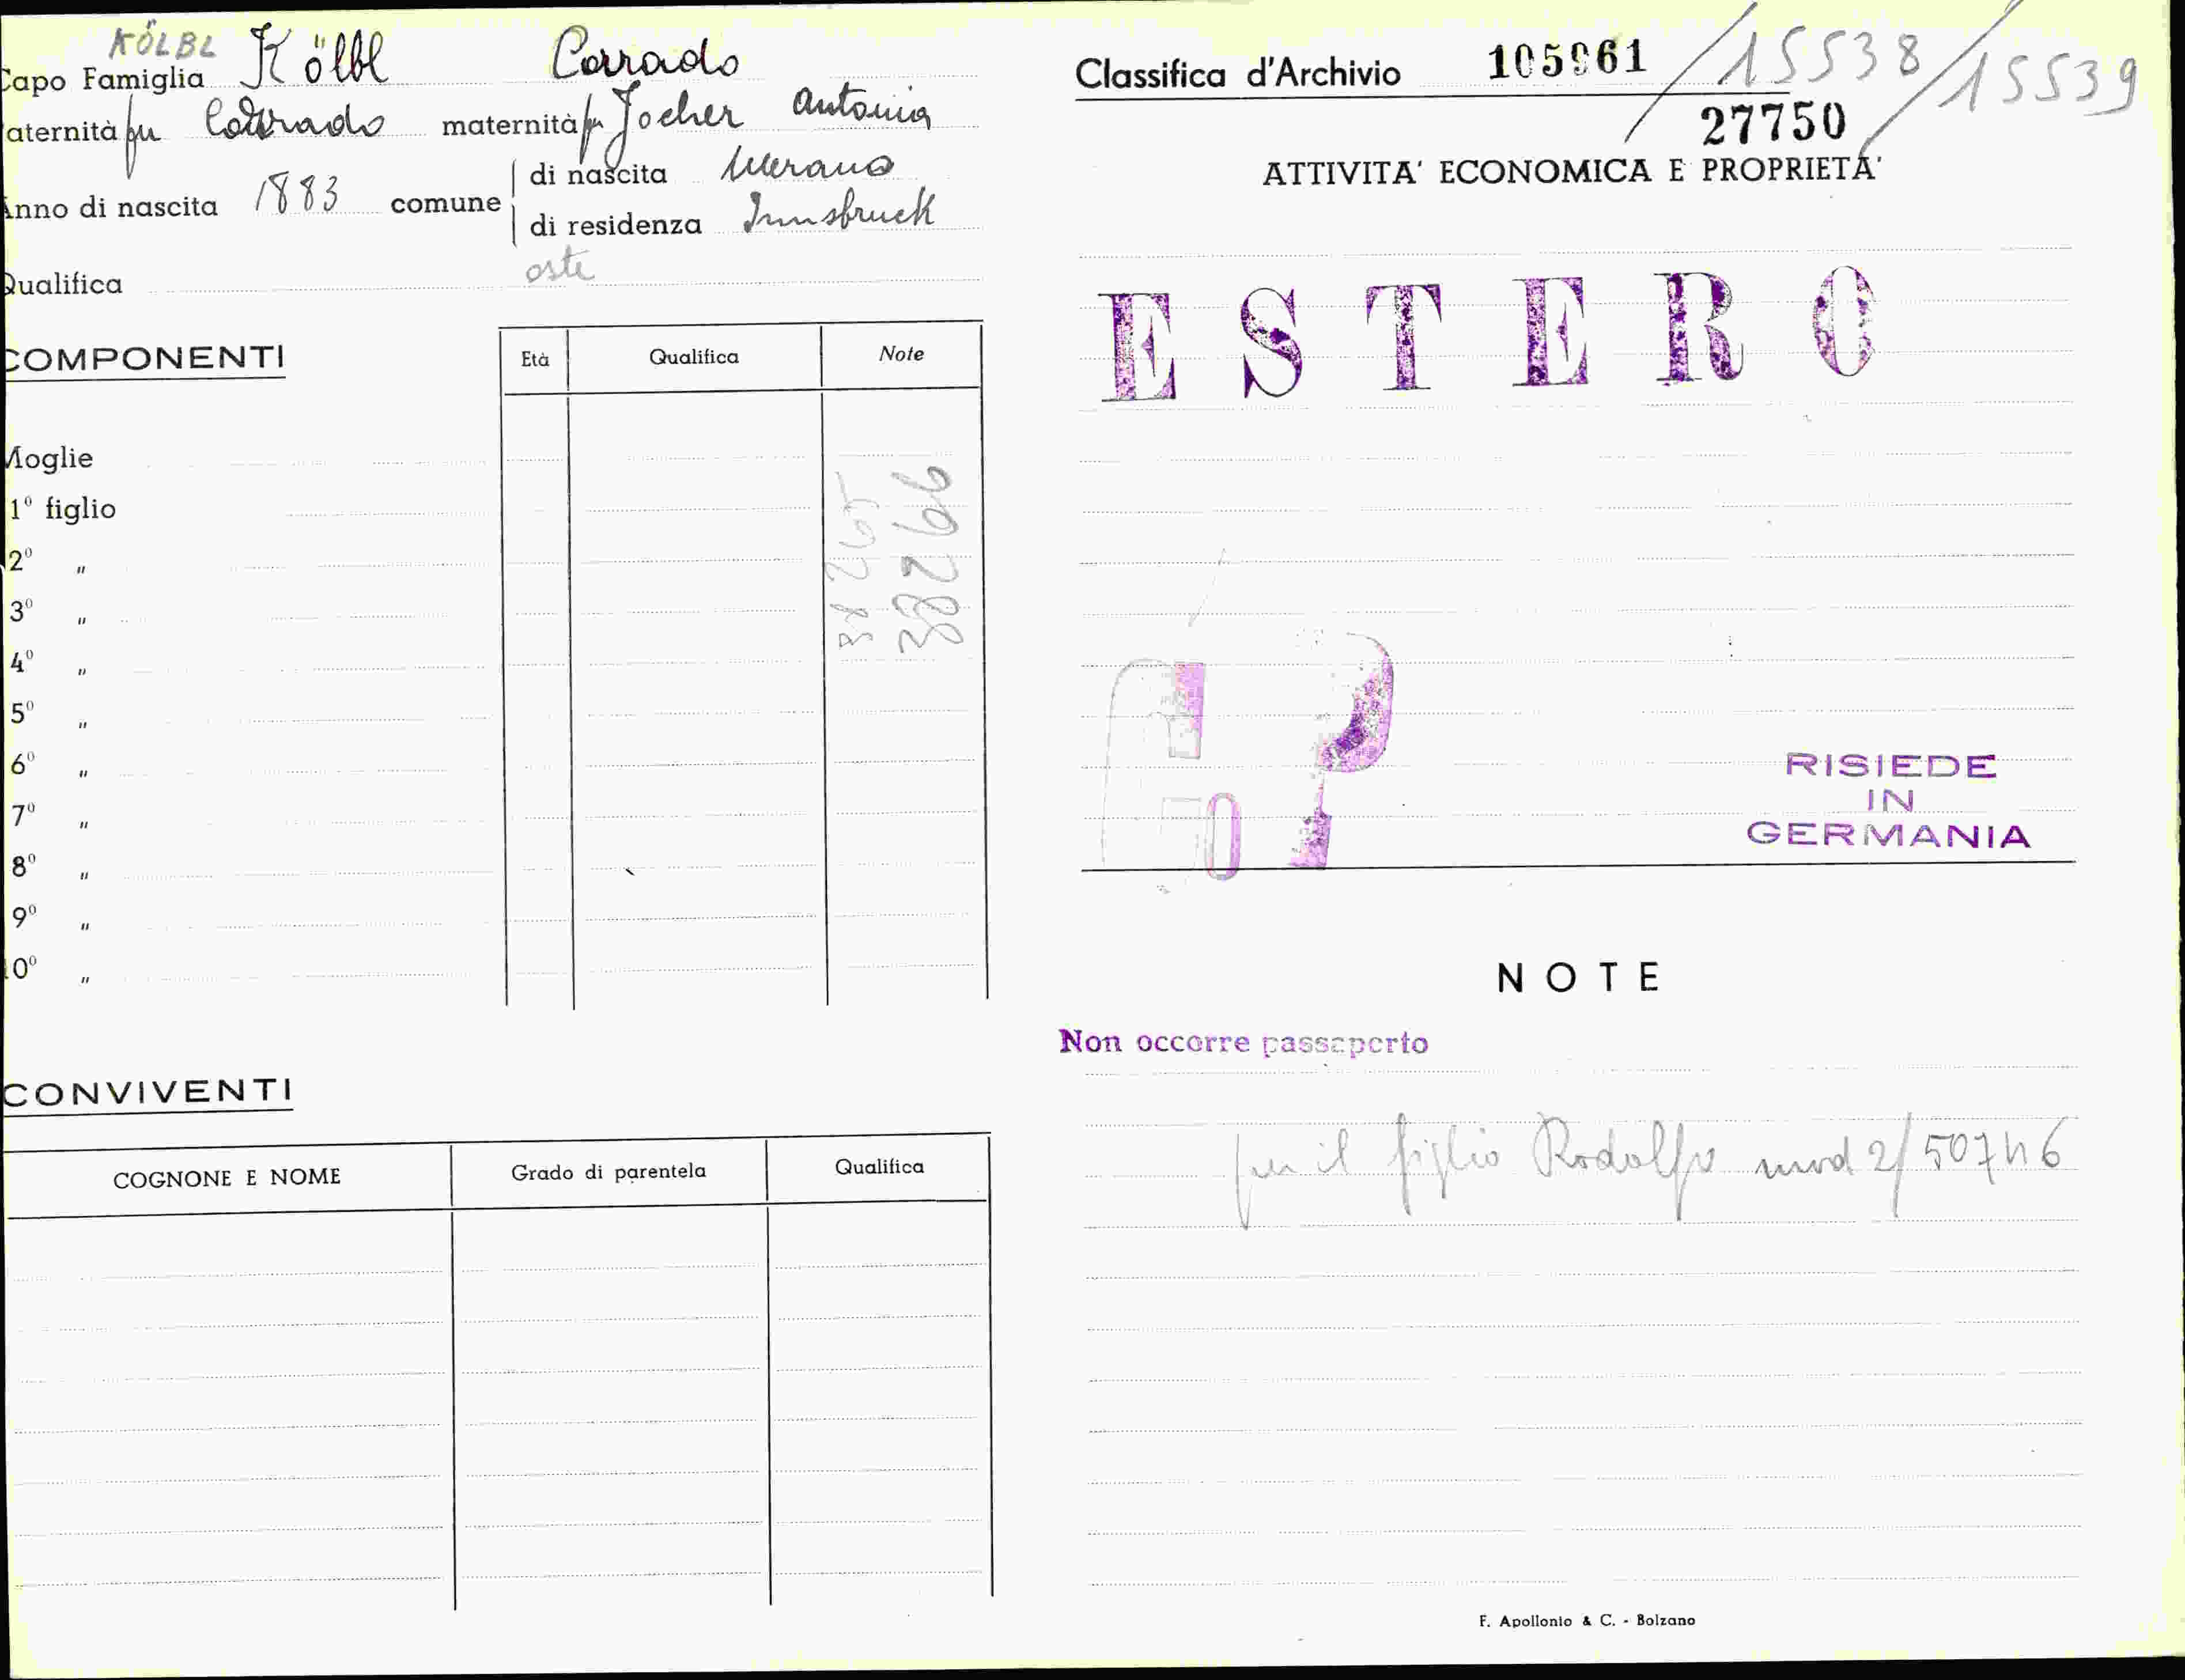 KÖLBL
Capo Famiglia Kölbl Corrado
aternità fu Corrado maternità fu Jocher Antonia
Anno di nascita 1883 comune di nascita Merano
di residenza Innsbruck
Qualifica oste
COMPONENTI Età Qualifica Note
Moglie
1º figlio
2º "
3º "
4º "
5º "
6º "
7º "
8º "
9º "
10º "
38265
38266
CONVIVENTI
COGNONE E NOME Grado di parentela Qualifica
Classifica d'Archivio 105961 / 15538 / 15539
27750
ATTIVITA' ECONOMICA E PROPRIETA'
ESTERO
RISIEDE
IN
GERMANIA
NOTE
Non occorre passaporto
per il figlio Rodolfo mod 2/50746
F. Apollonio & C. - Bolzano